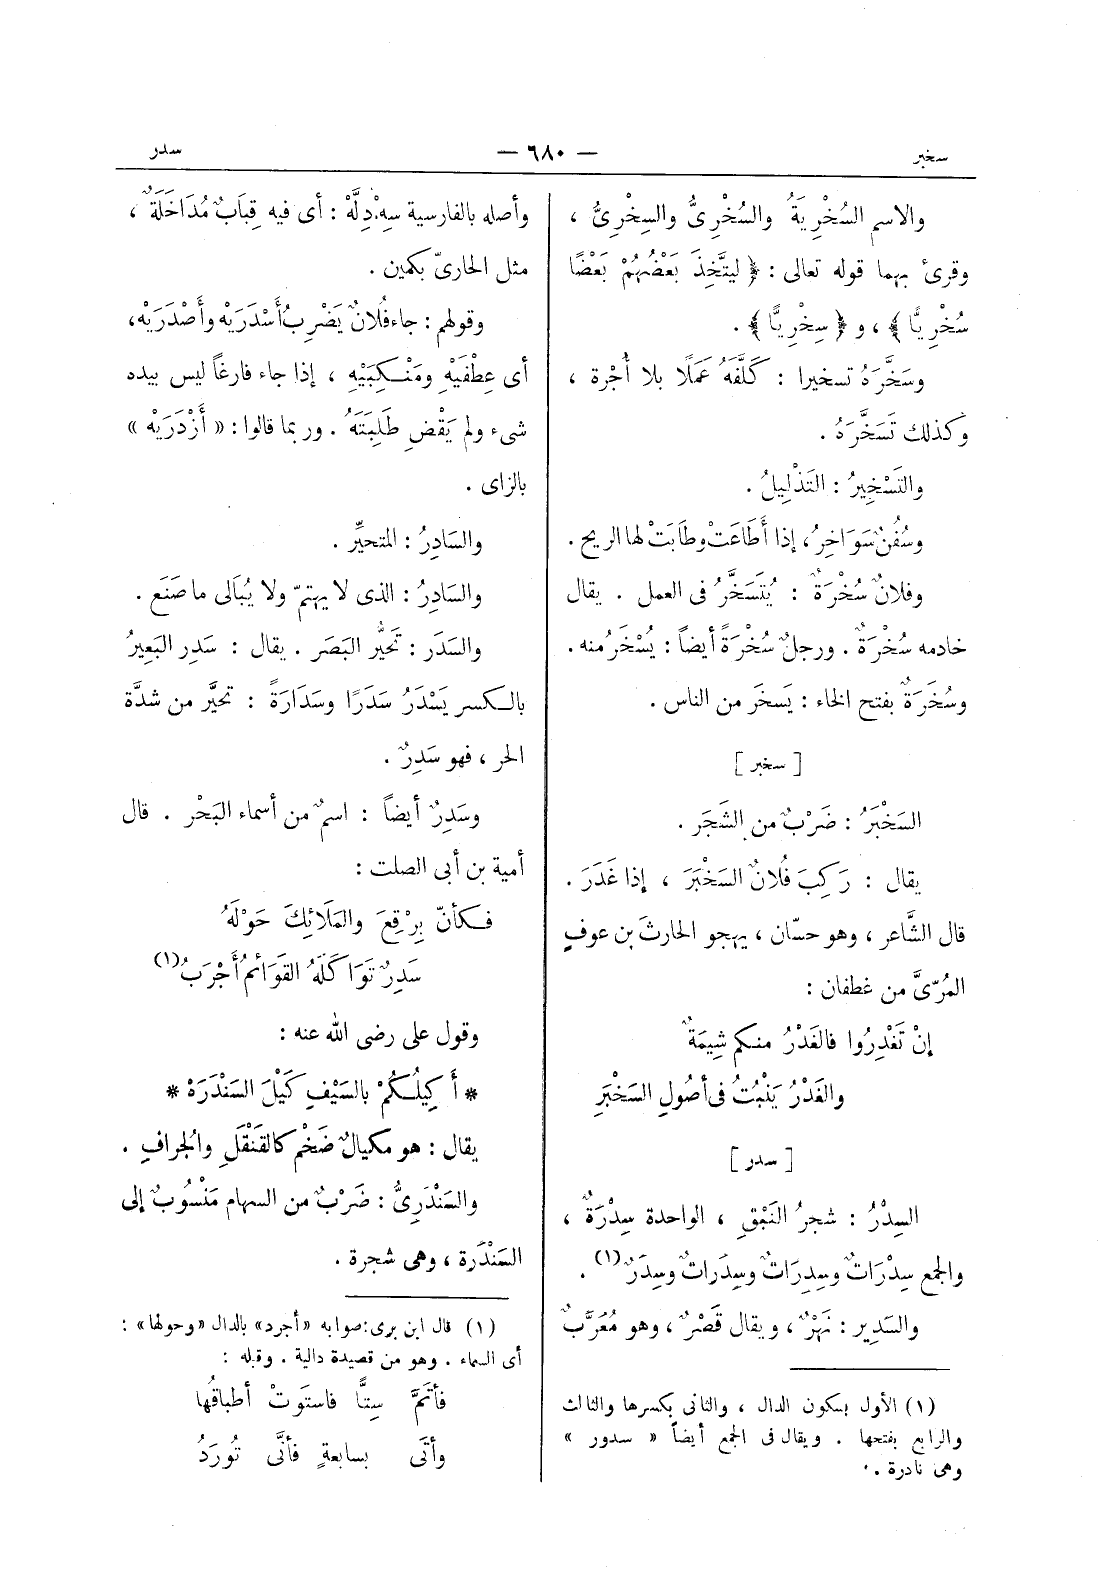 سخبر
— ٦٨٠ —
سدر
والاسم السُخْرِيَةُ والسُخْرِىُّ والسِخْرِىُّ ،
وقرئ بهما قوله تعالى : ﴿ ليتَّخِذَ بَعْضُهُمْ بَعْضًا
سُخْرِيًّا ﴾ ، و ﴿ سِخْرِيًّا ﴾ .
وسَخَّرَهُ تسخيرا : كَلَّفَهُ عَمَلًا بلا أُجْرة ،
وكذلك تَسَخَّرَهُ .
والتَسْخِيرُ : التَذْلِيلُ .
وسُفُنٌ سَوَاخِرُ، إذا أَطَاعَتْ وطَابَتْ لها الريح .
وفلانٌ سُخْرَةٌ : يُتَسَخَّرُ فى العمل . يقال
خادمه سُخْرَةٌ . ورجلٌ سُخْرَةٌ أيضاً : يُسْخَرُ منه .
وسُخَرَةٌ بفتح الخاء : يَسخَر من الناس .
[ سخبر ]
السَخْبَرُ : ضَرْبٌ من الشَجَر .
يقال : رَكِبَ فُلانٌ السَخْبَرَ ، إذا غَدَرَ .
قال الشَّاعر ، وهو حسّان ، يهجو الحارثَ بن عوفٍ
المُرّىَّ من غطفان :
إنْ تَغْدِرُوا فالغَدْرُ منكم شِيمَةٌ
والغَدْرُ يَنْبُتُ فى أصُولِ السَخْبَرِ
[ سدر ]
السِدْرُ : شجرُ النَبْقِ ، الواحدة سِدْرَةٌ ،
والجمع سِدْرَاتٌ وسِدِرَاتٌ وسِدَراتٌ وسِدَرٌ (١) .
والسَدِير : نَهْرٌ ، ويقال قَصْرٌ ، وهو مُعَرَّبٌ
(١) الأول بسكون الدال ، والثانى بكسرها والثالث
والرابع بفتحها . ويقال فى الجمع أيضاً « سدور »
وهى نادرة .
وأصله بالفارسية سِهْ دِلَّهْ : أى فيه قِبَابٌ مُدَاخَلَةٌ ،
مثل الحارىّ بكمين .
وقولهم : جاء فُلانٌ يَضْرِبُ أَسْدَرَيْهِ وأَصْدَرَيْهِ،
أى عِطْفَيْهِ ومَنْكِبَيْهِ ، إذا جاء فارغاً ليس بيده
شىء ولم يَقْضِ طَلِبَتَهُ . وربما قالوا : « أَزْدَرَيْهِ »
بالزاى .
والسَادِرُ : المتحيِّر .
والسَادِرُ : الذى لا يهتمّ ولا يُبَالى ما صَنَع .
والسَدَر : تَحَيُّر البَصَر . يقال : سَدِر البَعِيرُ
بالكسر يَسْدَرُ سَدَرًا وسَدَارَةً : تحيَّر من شدَّة
الحر ، فهو سَدِرٌ .
وسَدِرٌ أيضاً : اسمٌ من أسماء البَحْر . قال
أمية بن أبى الصلت :
فكأنّ بِرْقِعَ والمَلَائِكَ حَوْلَهُ
سَدِرٌ تَوَاكَلَهُ القَوَائمُ أَجْرَبُ (١)
وقول على رضى الله عنه :
* أَكِيلُكُمْ بالسَيْفِ كَيْلَ السَنْدَرَهْ *
يقال : هو مكيالٌ ضَخْم كالقَنْقَلِ والجُرافِ .
والسَنْدَرِىُّ : ضَرْبٌ من السهام مَنْسُوبٌ إلى
السَنْدَرة ، وهى شجرة .
(١) قال ابن برى : صوابه «أجرد» بالدال «وحولها» :
أى السماء . وهو من قصيدة دالية . وقبله :
فأتَمَّ سِتًّا فاستوَتْ أطباقُها
وأتَى بسابعةٍ فأنَّى تُورَدُ